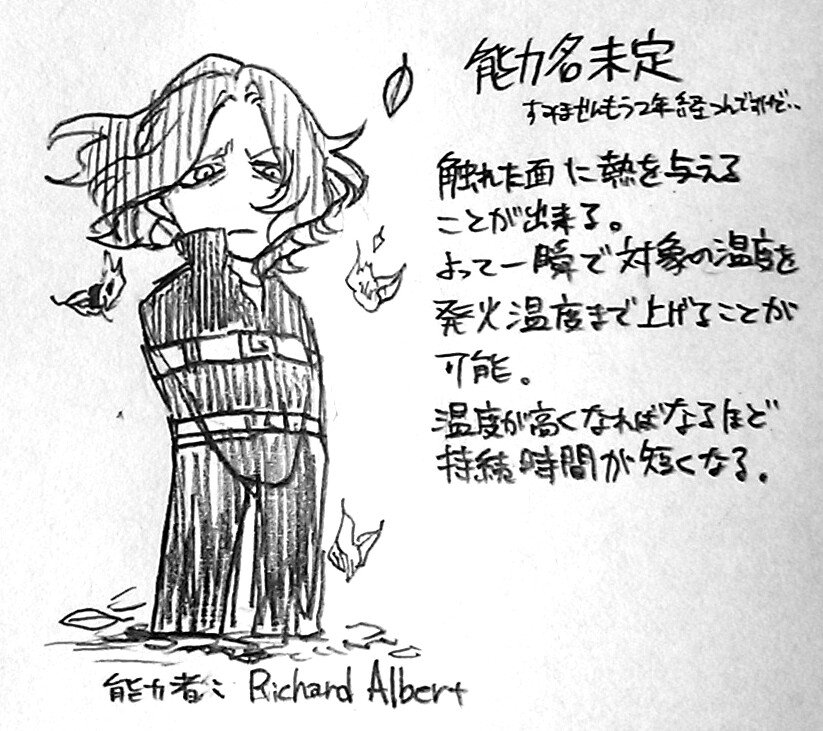 能力名未定
すみませんもう2年経つんですけど..
触れた面に熱を与える
ことが出来る。
よって一瞬で対象の温度を
発火温度まで上げることが
可能。
温度が高くなればなるほど
持続時間が短くなる。
能力者: Richard Albert